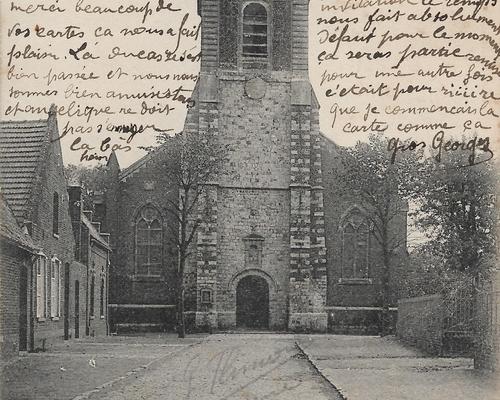 merci beaucoup de
vos cartes ça nous a fait
plaisir. La ducasse s'est
bien passée et nous nous
sommes bien amusés
ne doit
pas s'ennuyer
la bas
hein
invitation ce
nous fait absolument
défaut pour le moment
ça sera partie remise
pour une autre fois
c'etait pour riiiire
que je commençais la
carte comme ça
Gros Georges